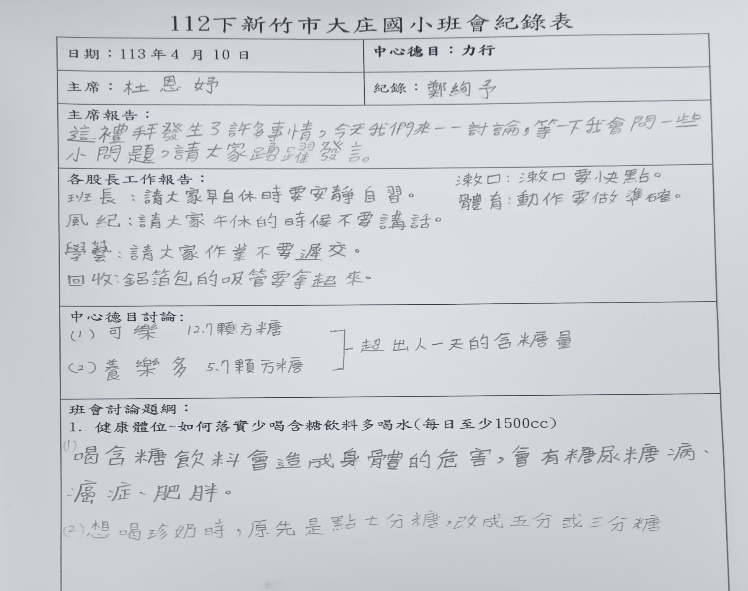 112下新竹市大庄國小班會紀錄表
日期：113年4月10日
中心德目：力行
主席：杜恩妤
紀錄：鄭絢予
主席報告：
這禮拜發生了許多事情，今天我們來一一討論，等一下我會問一些
小問題，請大家踴躍發言。
各股長工作報告：
班長：請大家早自休時要安靜自習。
風紀：請大家午休的時候不要講話。
學藝：請大家作業不要遲交。
回收：鋁箔包的吸管要拿起來。
漱口：漱口要快點。
體育：動作要做準確。
中心德目討論：
(1)可樂 12.7顆方糖
(2)養樂多 5.7顆方糖
超出人一天的含糖量
班會討論題綱：
1. 健康體位~如何落實少喝含糖飲料多喝水(每日至少1500cc)
(1)喝含糖飲料會造成身體的危害，會有糖尿糖病、
癌症、肥胖。
(2)想喝珍奶時，原先是點七分糖，改成五分或三分糖